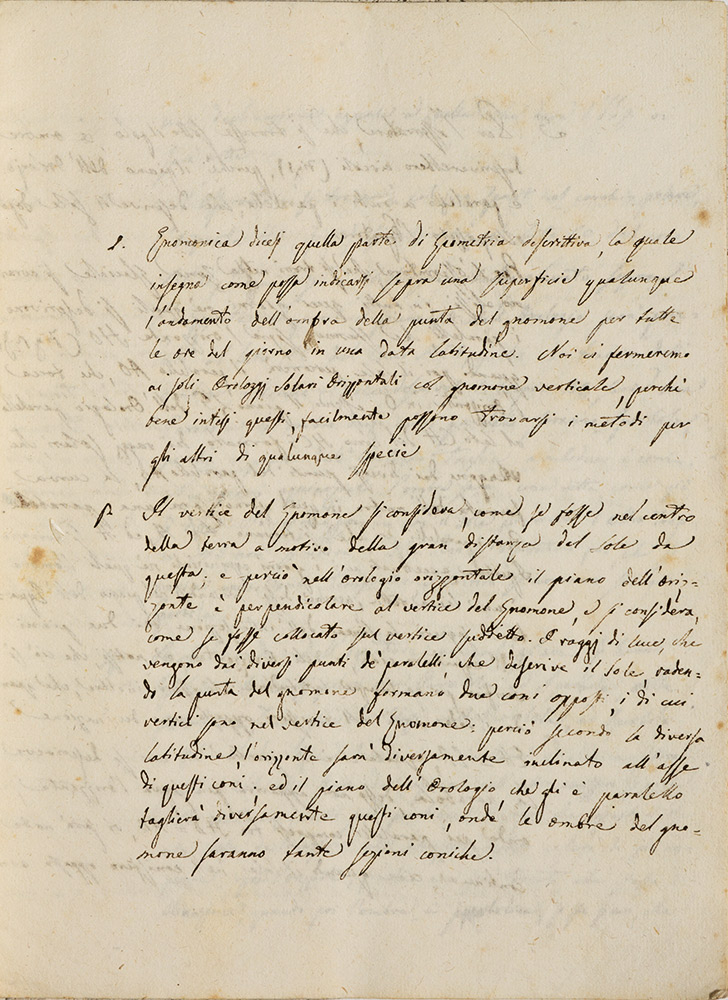 1. Gnomonica dicesi quella parte di Geometria descrittiva, la quale
insegna come possa indicarsi sopra una superficie qualunque
l'andamento dell'ombra della punta del gnomone per tutte
le ore del giorno in una data latitudine. Noi ci fermeremo
ai soli Orologj Solari Orizzontali col gnomone verticale, perchè
bene intesi questi, facilmente possono trovarsi i metodi per
gli altri di qualunque specie
Il vertice del Gnomone si considera, come se fosse nel centro
della terra a motivo della gran distanza del Sole da
questa; e perciò nell'orologio orizzontale il piano dell'oriz=
zonte è perpendicolare al vertice del Gnomone, e si considera,
come se fosse collocato sul vertice suddetto. I raggi di luce, che
vengono dai diversi punti de' paralelli che descrive il Sole, raden-
do la punta del gnomone formano due coni opposti, i di cui
vertici sono nel vertice del Gnomone: perciò secondo la diversa
latitudine, l'orizzonte sarà diversamente inclinato all'asse
di questi coni; ed il piano dell'Orologio che gli è paralello
taglierà diversamente questi coni, onde le ombre del gno-
mone saranno tante sezioni coniche.